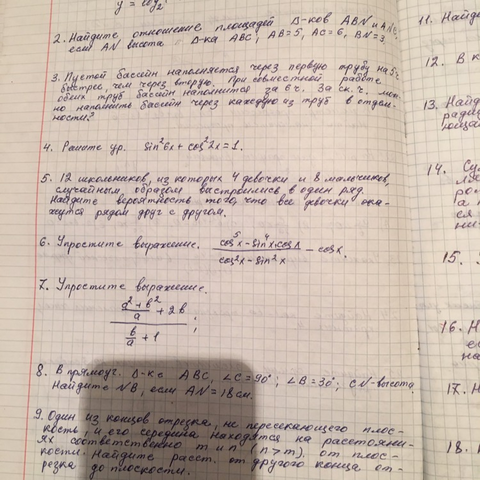 y = log₂
2. Найдите отношение площадей Δ-ков ABN и ANC,
если AN высота Δ-ка ABC, AB=5, AC=6, BN=3.
3. Пустой бассейн наполняется через первую трубу на 5ч.
быстрее, чем через вторую. При совместной работе
обеих труб бассейн наполнится за 6ч. За ск. ч. мож-
но наполнить бассейн через каждую из труб в отдель-
ности?
4. Решите ур. sin²6x + cos²2x = 1.
5. 12 школьников, из которых 4 девочки и 8 мальчиков,
случайным образом выстроились в один ряд.
Найдите вероятность того, что все девочки ока-
жутся рядом друг с другом.
6. Упростите выражение.
cos⁵x - sin⁴x·cosx
cos²x - sin²x
- cosx.
7. Упростите выражение.
a² + b²
a
+ 2b
b
a
+ 1
;
8. В прямоуг. Δ-ке ABC, ∠C=90°; ∠B=30°; CN-высота.
Найдите NB, если AN=18см.
9. Один из концов отрезка, не пересекающего плос-
кость, и его середина находятся на расстояни-
ях соответственно m и n (n>m), от плос-
кости. Найдите расст. от другого конца от-
резка до плоскости.
11. Найди
12. В к
13. Найд
радиу
ющая
14. Су
а п
ся
ни
15.
16. Н
ес
на
17. Н
18.